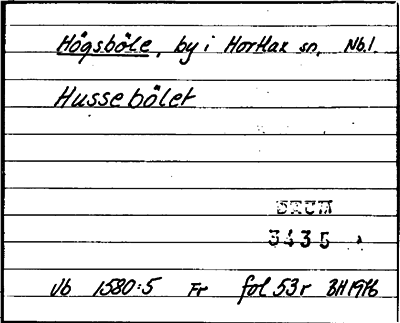 Högsböle, by i Hortlax sn, Nb.l.
Hussebölet
3435
Vb 1580:5 Fr fol 53r BH1976